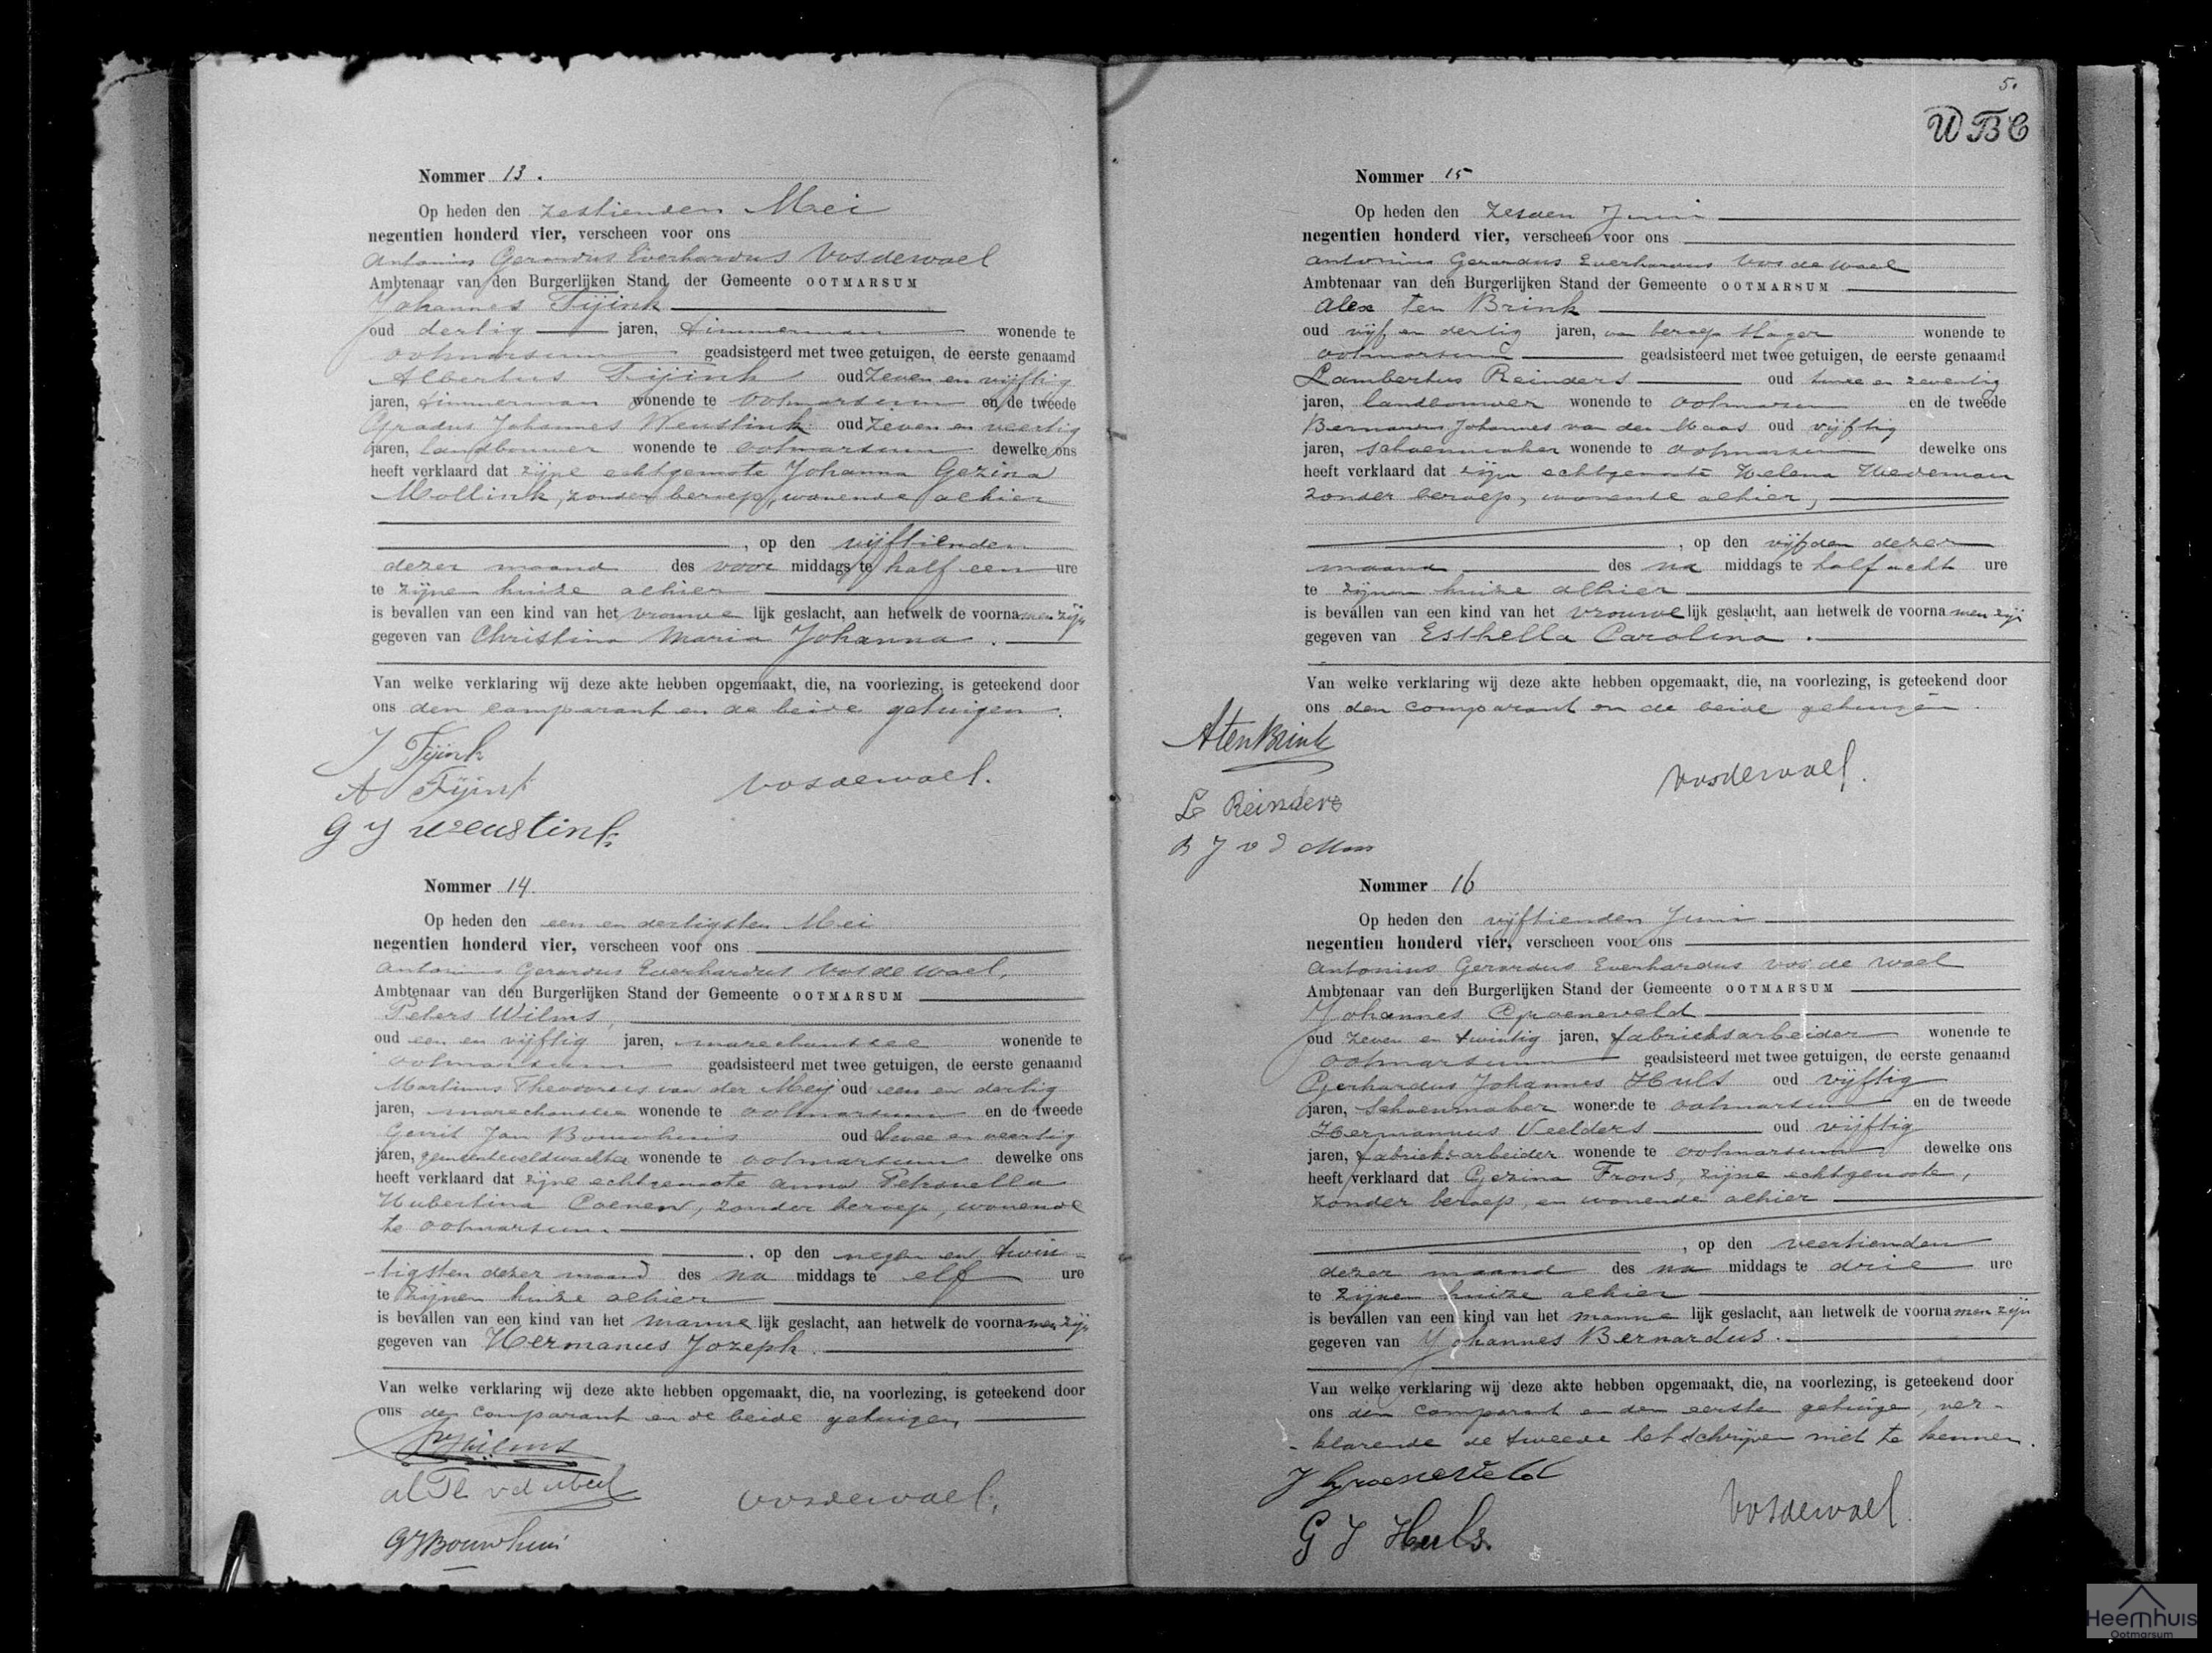 Nommer 13.
Op heden den zestienden Mei
negentien honderd vier, verscheen voor ons
Antonius Gerardus Everhardus Vosdewael
Ambtenaar van den Burgerlijken Stand der Gemeente OOTMARSUM
Johannes Fijink
oud dertig jaren, timmerman wonende te
Ootmarsum geadsisteerd met twee getuigen, de eerste genaamd
Albertus Fijink oud zeven en vijftig
jaren, timmerman wonende te Ootmarsum en de tweede
Gradus Johannes Weustink oud zeven en veertig
jaren, landbouwer wonende te Ootmarsum dewelke ons
heeft verklaard dat zijne echtgenoote Johanna Gezina
Mollink, zonder beroep, wonende alhier
, op den vijftienden
dezer maand des voor middags te half een ure
te zijnen huize alhier
is bevallen van een kind van het vrouwe lijk geslacht, aan hetwelk de voornamen zijn
gegeven van Christina Maria Johanna.
Van welke verklaring wij deze akte hebben opgemaakt, die, na voorlezing, is geteekend door
ons den comparant en de beide getuigen.
J Fijink
A Fijink
Vosdewael.
G J Weustink
Nommer 14.
Op heden den een en dertigsten Mei
negentien honderd vier, verscheen voor ons
Antonius Gerardus Everhardus Vosdewael,
Ambtenaar van den Burgerlijken Stand der Gemeente OOTMARSUM
Peters Wilms,
oud een en vijftig jaren, marechaussee wonende te
Ootmarsum geadsisteerd met twee getuigen, de eerste genaamd
Martinus Theodorus van der Meij oud een en dertig
jaren, marechaussee wonende te Ootmarsum en de tweede
Gerrit Jan Bouwhuis oud twee en veertig
jaren, gemeenteveldwachter wonende te Ootmarsum dewelke ons
heeft verklaard dat zijne echtgenoote Anna Petronella
Hubertina Coenen, zonder beroep, wonende
te Ootmarsum
, op den negen en twin-
-tigsten dezer maand des na middags te elf ure
te zijnen huize alhier
is bevallen van een kind van het manne lijk geslacht, aan hetwelk de voornamen zijn
gegeven van Hermanus Jozeph.
Van welke verklaring wij deze akte hebben opgemaakt, die, na voorlezing, is geteekend door
ons den comparant en de beide getuigen,
Wilms
Vosdewael.
GJ Bouwhuis
5.
WBC
Nommer 15
Op heden den zesden Juni
negentien honderd vier, verscheen voor ons
Antonius Gerardus Everhardus Vos de Wael
Ambtenaar van den Burgerlijken Stand der Gemeente OOTMARSUM
Alex ten Brink
oud vijf en dertig jaren, van beroep slager wonende te
Ootmarsum geadsisteerd met twee getuigen, de eerste genaamd
Lambertus Reinders oud twee en zeventig
jaren, landbouwer wonende te Ootmarsum en de tweede
Bernardus Johannes van der Maas oud vijftig
jaren, schoenmaker wonende te Ootmarsum dewelke ons
heeft verklaard dat zijn echtgenoote Helena Hedeman
zonder beroep, wonende alhier,
, op den vijfden dezer
maand des na middags te half acht ure
te zijnen huize alhier
is bevallen van een kind van het vrouwe lijk geslacht, aan hetwelk de voorna men zijn
gegeven van Esthella Carolina.
Van welke verklaring wij deze akte hebben opgemaakt, die, na voorlezing, is geteekend door
ons den comparant en de beide getuigen.
A ten Brink
Vosdewael.
L Reinders
B J v d Maas
Nommer 16
Op heden den vijftienden Juni
negentien honderd vier, verscheen voor ons
Antonius Gerardus Everhardus Vos de Wael
Ambtenaar van den Burgerlijken Stand der Gemeente OOTMARSUM
Johannes Groeneveld
oud zeven en twintig jaren, fabrieksarbeider wonende te
Ootmarsum geadsisteerd met twee getuigen, de eerste genaamd
Gerhardus Johannes Huls oud vijftig
jaren, schoenmaker wonende te Ootmarsum en de tweede
Hermannus Veelders oud vijftig
jaren, fabrieksarbeider wonende te Ootmarsum dewelke ons
heeft verklaard dat Gezina Frons, zijne echtgenoote,
zonder beroep, en wonende alhier
, op den veertienden
dezer maand des na middags te drie ure
te zijnen huize alhier
is bevallen van een kind van het manne lijk geslacht, aan hetwelk de voorna men zijn
gegeven van Johannes Bernardus.
Van welke verklaring wij deze akte hebben opgemaakt, die, na voorlezing, is geteekend door
ons den comparant en den eersten getuige, ver-
-klarende de tweede het schrijven niet te kennen.
J Groeneveld
Vosdewael.
G J Huls.
Heemhuis
Ootmarsum